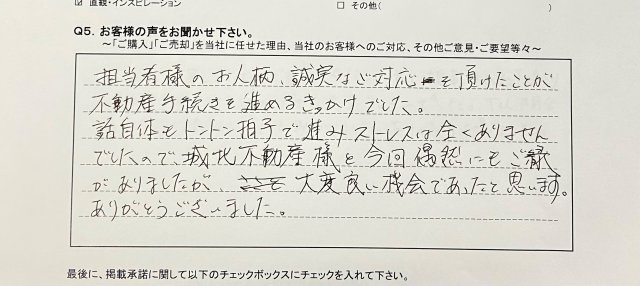 ☑ 直観・インスピレーション □ その他( )
Q5．お客様の声をお聞かせ下さい。
～「ご購入」「ご売却」を当社に任せた理由、当社のお客様へのご対応、その他ご意見・ご要望等々～
担当者様のお人柄、誠実なご対応を頂けたことが
不動産手続きを進めるきっかけでした。
話自体もトントン拍子で進みストレスは全くありません
でしたので、城北不動産様と今回偶然にもご縁
がありましたが、大変良い機会であったと思います。
ありがとうございました。
最後に、掲載承諾に関して以下のチェックボックスにチェックを入れて下さい。